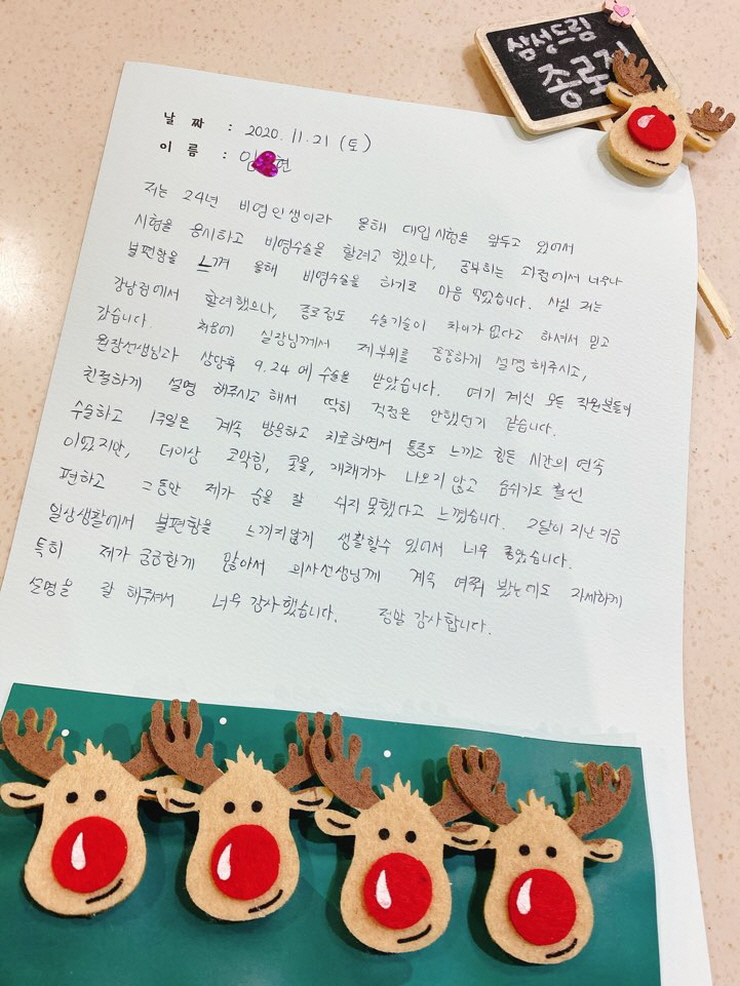 삼성드림
종로점
날 짜 : 2020. 11. 21 (토)
이 름 : 임 편
저는 24년 비염인생이라 올해 대입시험을 앞두고 있어서
시험을 응시하고 비염수술을 할려고 했으나, 공부하는 과정에서 너무나
불편함을 느껴 올해 비염수술을 하기로 마음 먹었습니다. 사실 저는
강남점에서 할려했으나, 종로점도 수술기술이 차이가 없다고 하셔서 믿고
갔습니다. 처음에 실장님께서 제부위를 꼼꼼하게 설명해주시고,
원장선생님과 상담후 9.24에 수술을 받았습니다. 여기 계신 모든 직원분들이
친절하게 설명 해주시고 해서 딱히 걱정은 안했던거 같습니다.
수술하고 1주일은 계속 방문하고 치료하면서 통증도 느끼고 힘든 시간의 연속
이었지만, 더이상 코막힘, 콧물, 재채기가 나오지 않고 숨쉬기도 훨씬
편하고 그동안 제가 숨을 잘 쉬지 못했다고 느꼈습니다. 2달이 지난 지금
일상생활에서 불편함을 느끼지않게 생활할수 있어서 너무 좋았습니다.
특히 제가 궁금한게 많아서 의사선생님께 계속 여쭤 봤는데도 자세하게
설명을 잘 해주셔서 너무 감사했습니다. 정말 감사합니다.